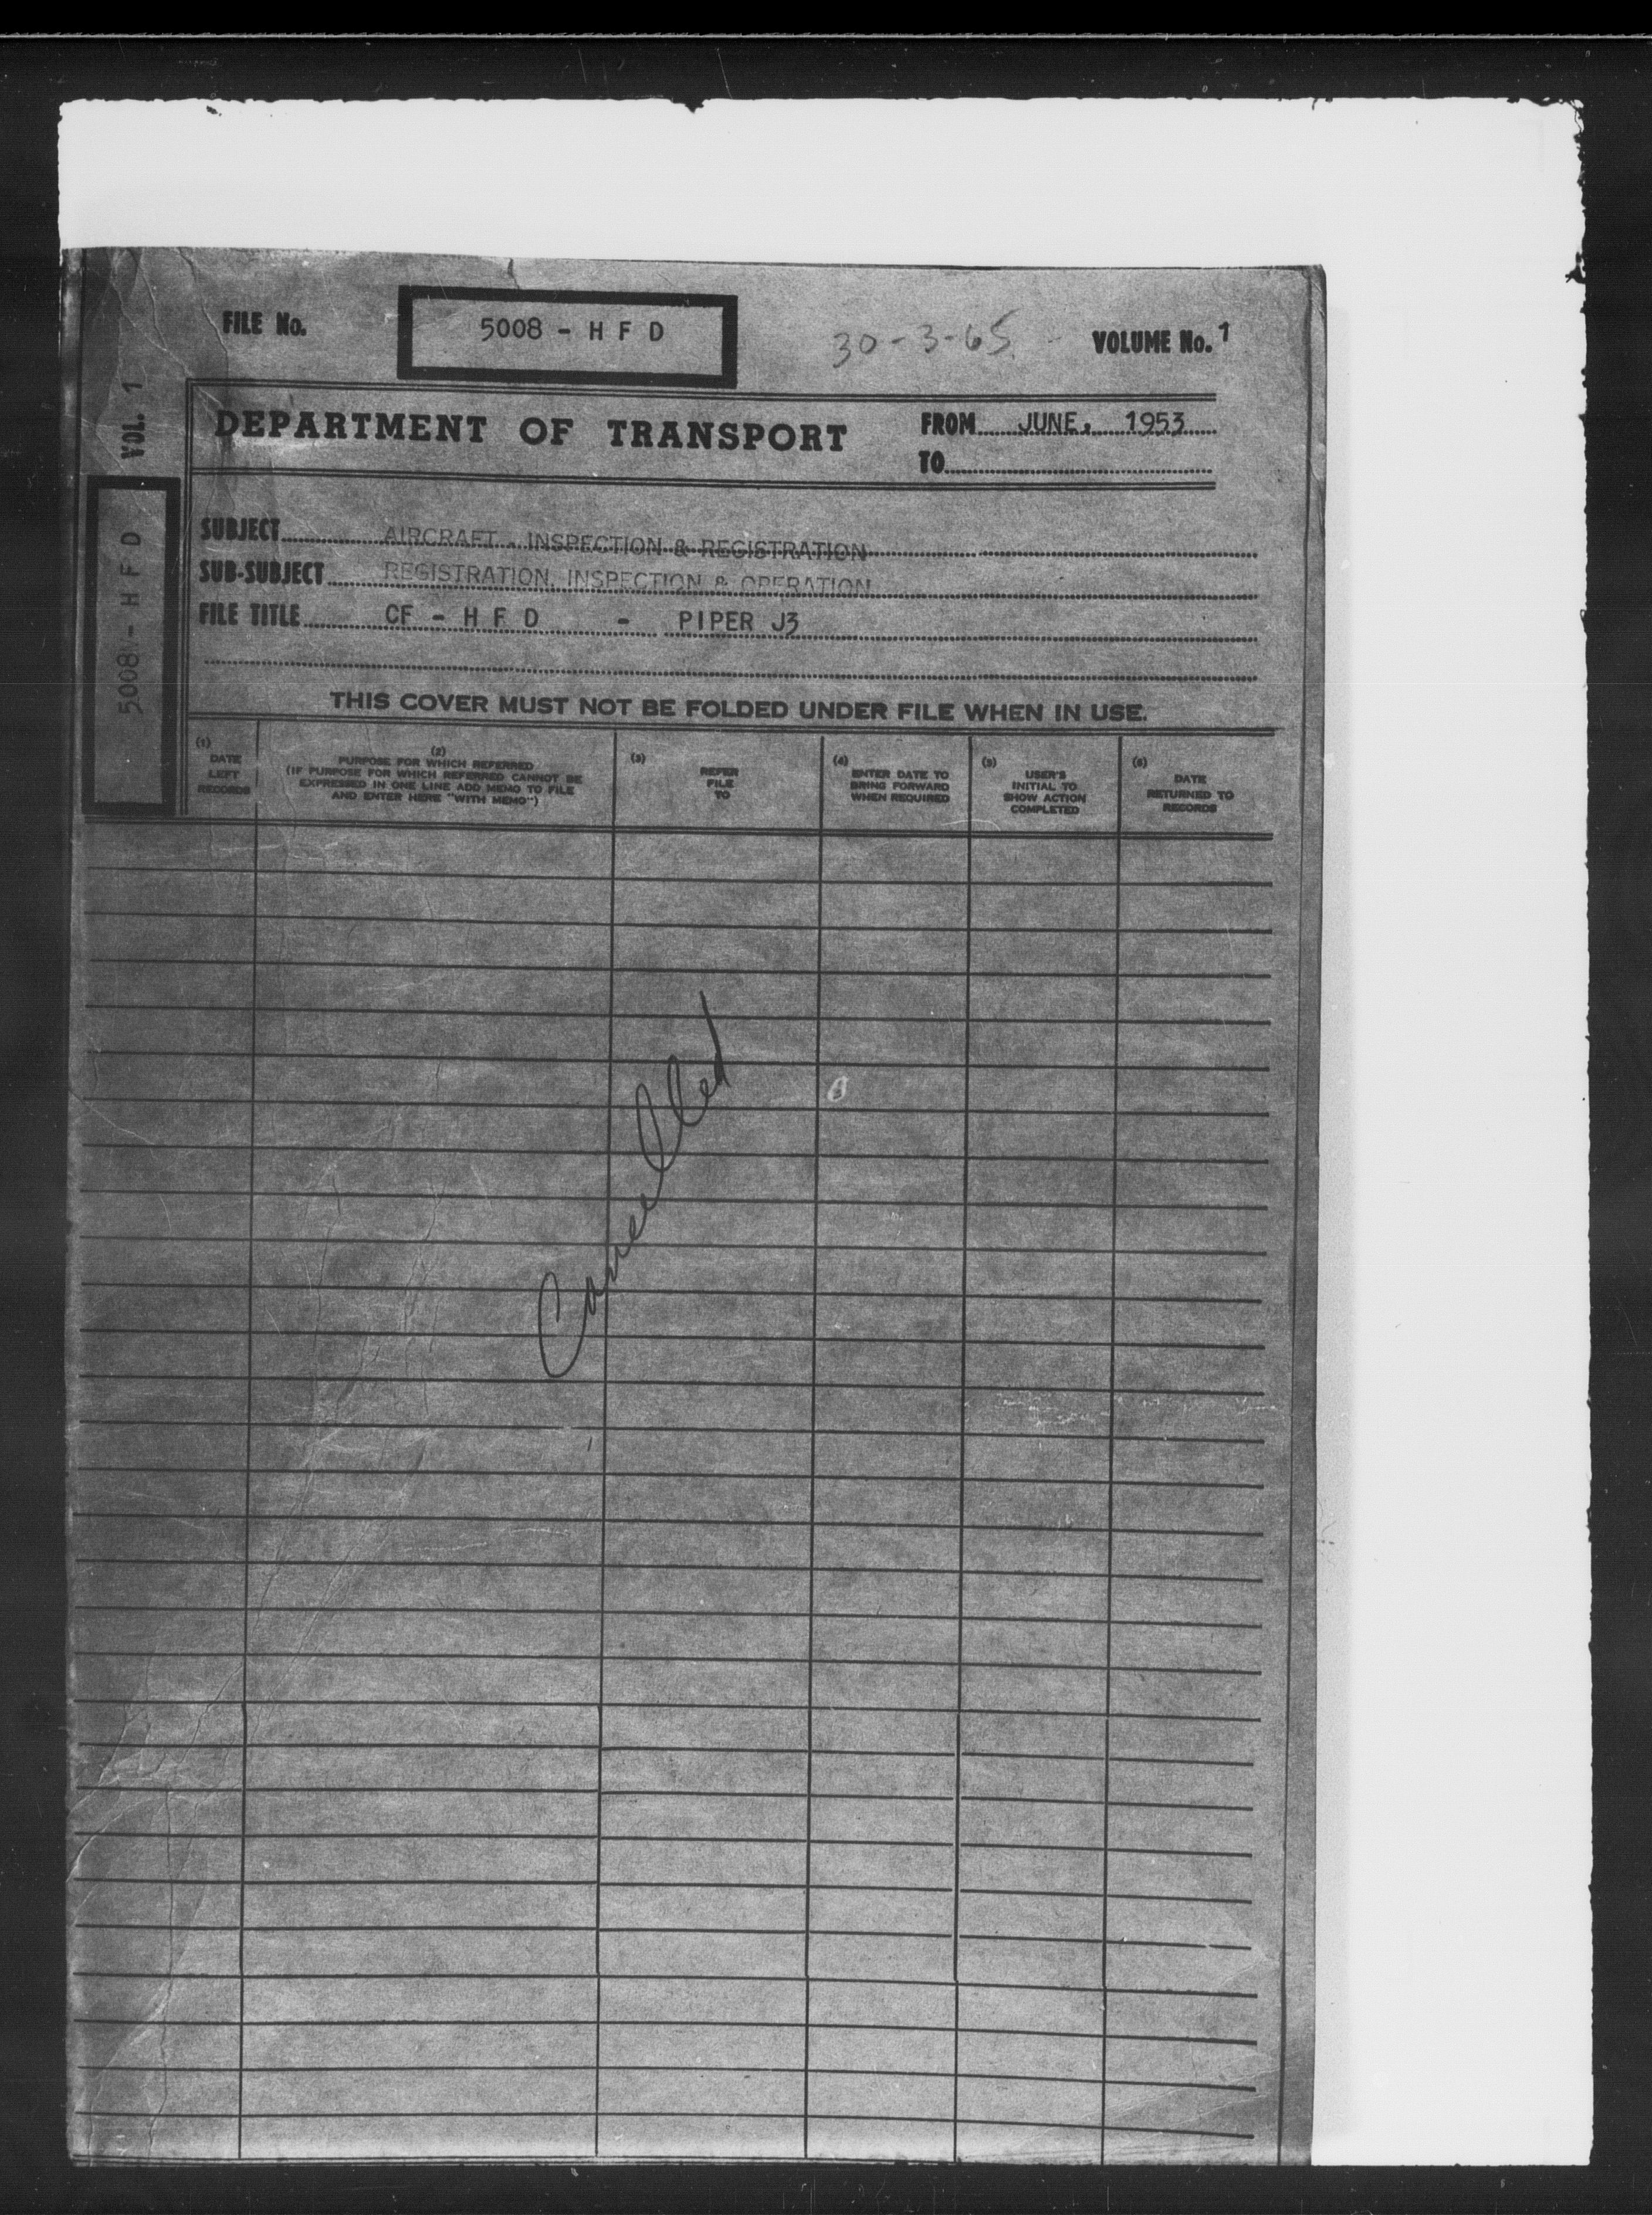 FILE No.
5008 - H F D
30-3-65
VOLUME No. 1
VOL. 1
5008 - H F D
DEPARTMENT OF TRANSPORT
FROM JUNE, 1953
TO
SUBJECT AIRCRAFT - INSPECTION & REGISTRATION
SUB-SUBJECT REGISTRATION, INSPECTION & OPERATION
FILE TITLE CF - H F D - PIPER J3
THIS COVER MUST NOT BE FOLDED UNDER FILE WHEN IN USE.
(1)
DATE
LEFT
RECORDS
(2)
PURPOSE FOR WHICH REFERRED
(IF PURPOSE FOR WHICH REFERRED CANNOT BE
EXPRESSED IN ONE LINE ADD MEMO TO FILE
AND ENTER HERE "WITH MEMO")
(3)
REFER
FILE
TO
(4)
ENTER DATE TO
BRING FORWARD
WHEN REQUIRED
(5)
USER'S
INITIAL TO
SHOW ACTION
COMPLETED
(6)
DATE
RETURNED TO
RECORDS
Cancelled